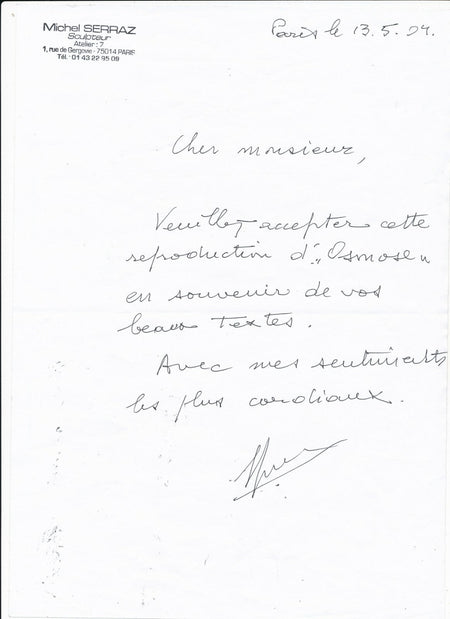 Michel SERRAZ
Sculpteur
Atelier : 7
1, rue de Gergovie - 75014 PARIS
Tél. 01 43 22 95 09
Paris le 13.5.04.
Cher monsieur,
Veuillez accepter cette
reproduction d'„Osmose„
en souvenir de vos
beaux textes.
Avec mes sentiments
les plus cordiaux.